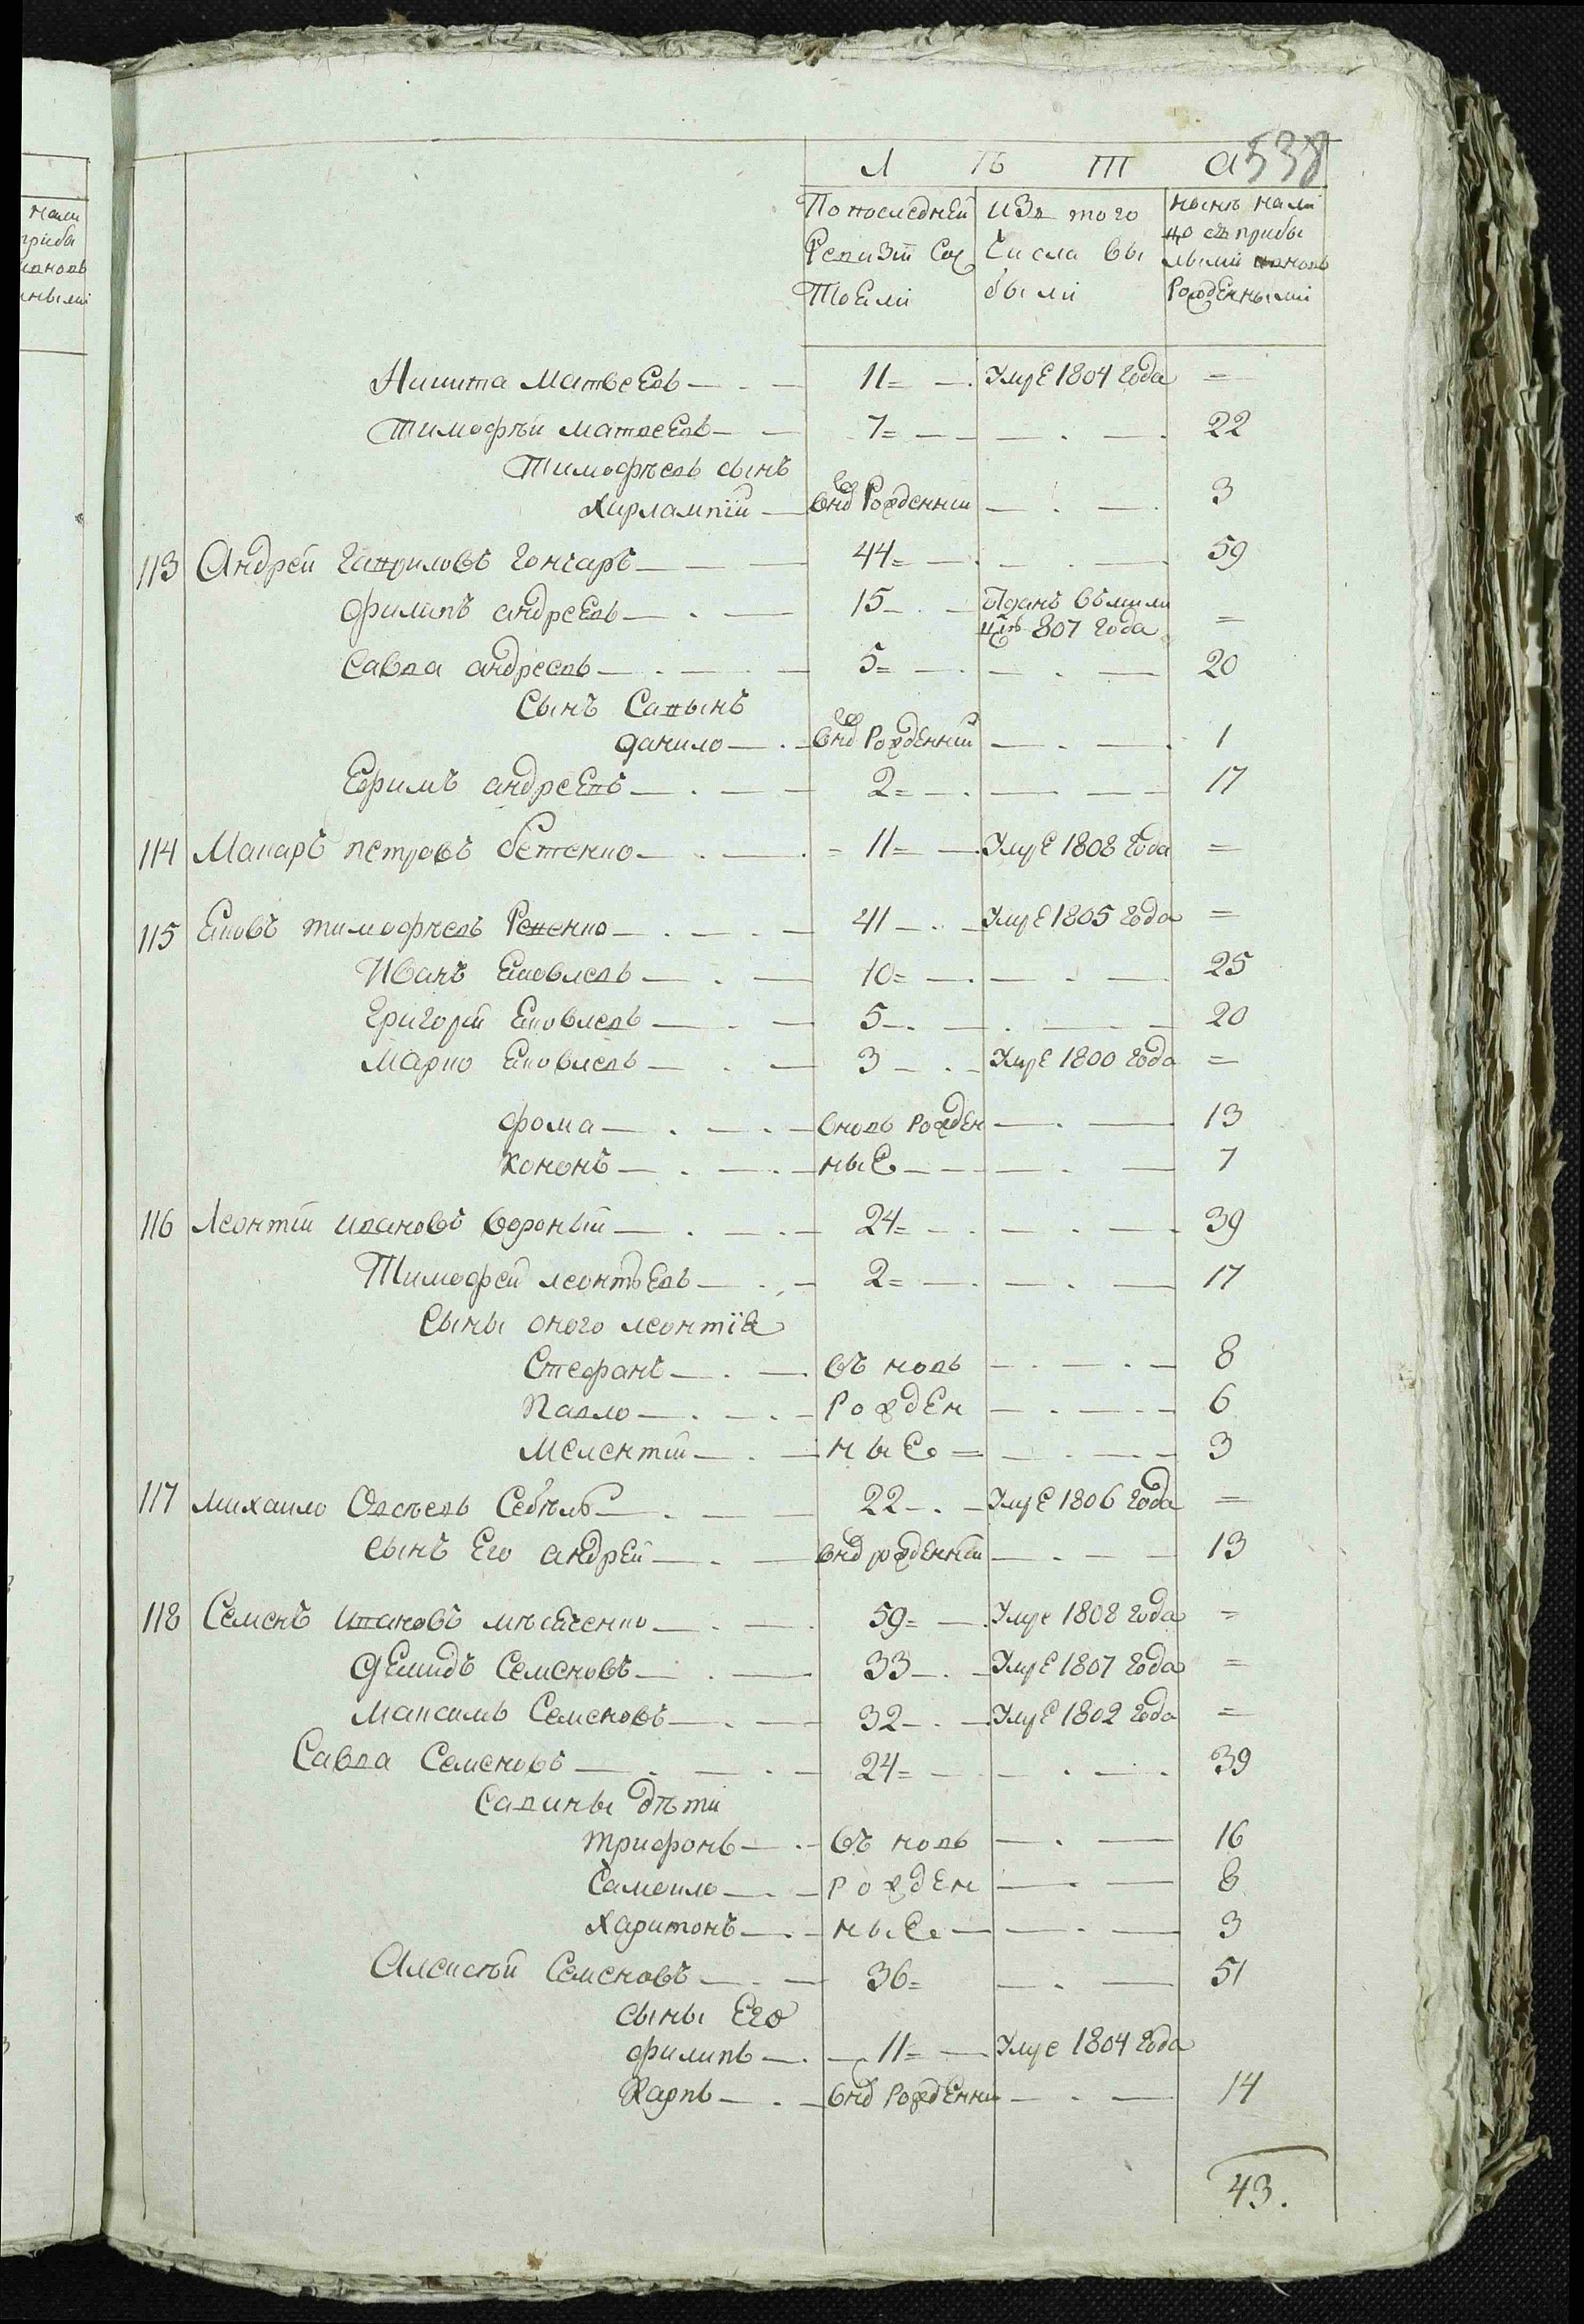 нали
приба
вновь
ными
538
Л Ѣ Т А
По последней изъ того нынѣ нали
Ревизіи сос числа вы цо съ прибы
тоели были лыми и вновь
Рожденными
Никита Матвеевъ 11 умре 1804 года =
Тимофѣи матвеевъ 7 22
Тимофѣевъ сынъ
Харлампіи внов Рожденнии 3
113 Андрей гавриловъ гончаръ 44 59
Филипъ андреевъ 15 отданъ въ мили
цію 807 года =
Савва андреевъ 5 20
Сынъ Савынъ
данило внов Рожденнии 1
Ефимъ андреевъ 2 17
114 Макаръ петровъ бетенко 11 умре 1808 года =
115 Яковъ тимофѣевъ Ревенко 41 умре 1805 года =
Иванъ Яковлевъ 10 25
Григорій Яковлевъ 5 20
Марко Яковлевъ 3 умре 1800 года =
фома вновь рожден 13
Кононъ ные 7
116 Леонтій ивановъ вороный 24 39
Тимофей леонтьевъ 2 17
Сыны оного леонтія
Стефанъ въ новь 8
Павло рожден 6
Мелентій ные 3
117 Михаило Овсѣевъ Себѣль 22 умре 1806 года =
сынъ Его андрей внов рожденній 13
118 Семенъ ивановъ 59 умре 1808 года =
Демидъ Семеновъ 33 умре 1807 года =
Максимъ Семеновъ 32 умре 1802 года =
Савва Семеновъ 24 39
Савины дѣти
трифонъ въ новь 16
Самоило рожден 8
Харитонъ ные 3
Алексѣй Семеновъ 36 51
сыны Его
филипъ 11 умре 1804 года
Карпъ внов Рожденни 14
43.